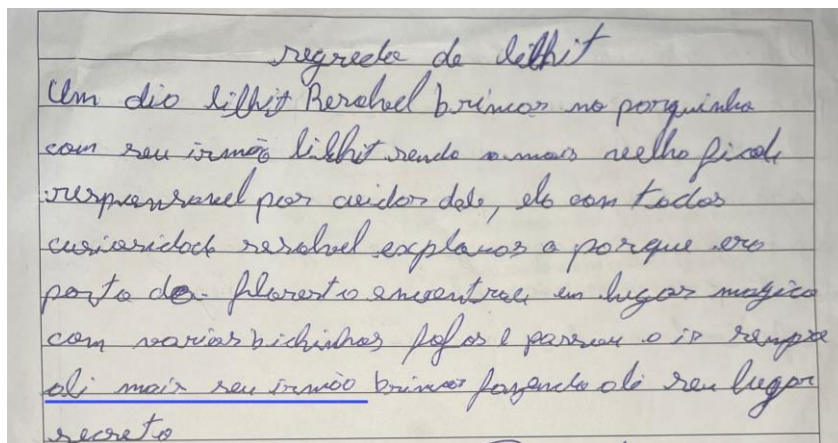 segredo de lilhit
Um dia lilhit Resolvel brincar no parquinho
com seu irmão lilhit sendo a mais velha ficol
responsavel por cuidar dele, ela com todas
curiosidade resolvel explorar o parque era
perto da floresta encontrou um lugar magico
com varios bichinhos fofos e passou a ir sempre
ali mais seu irmão brincar fazendo ali seu lugar
secreto